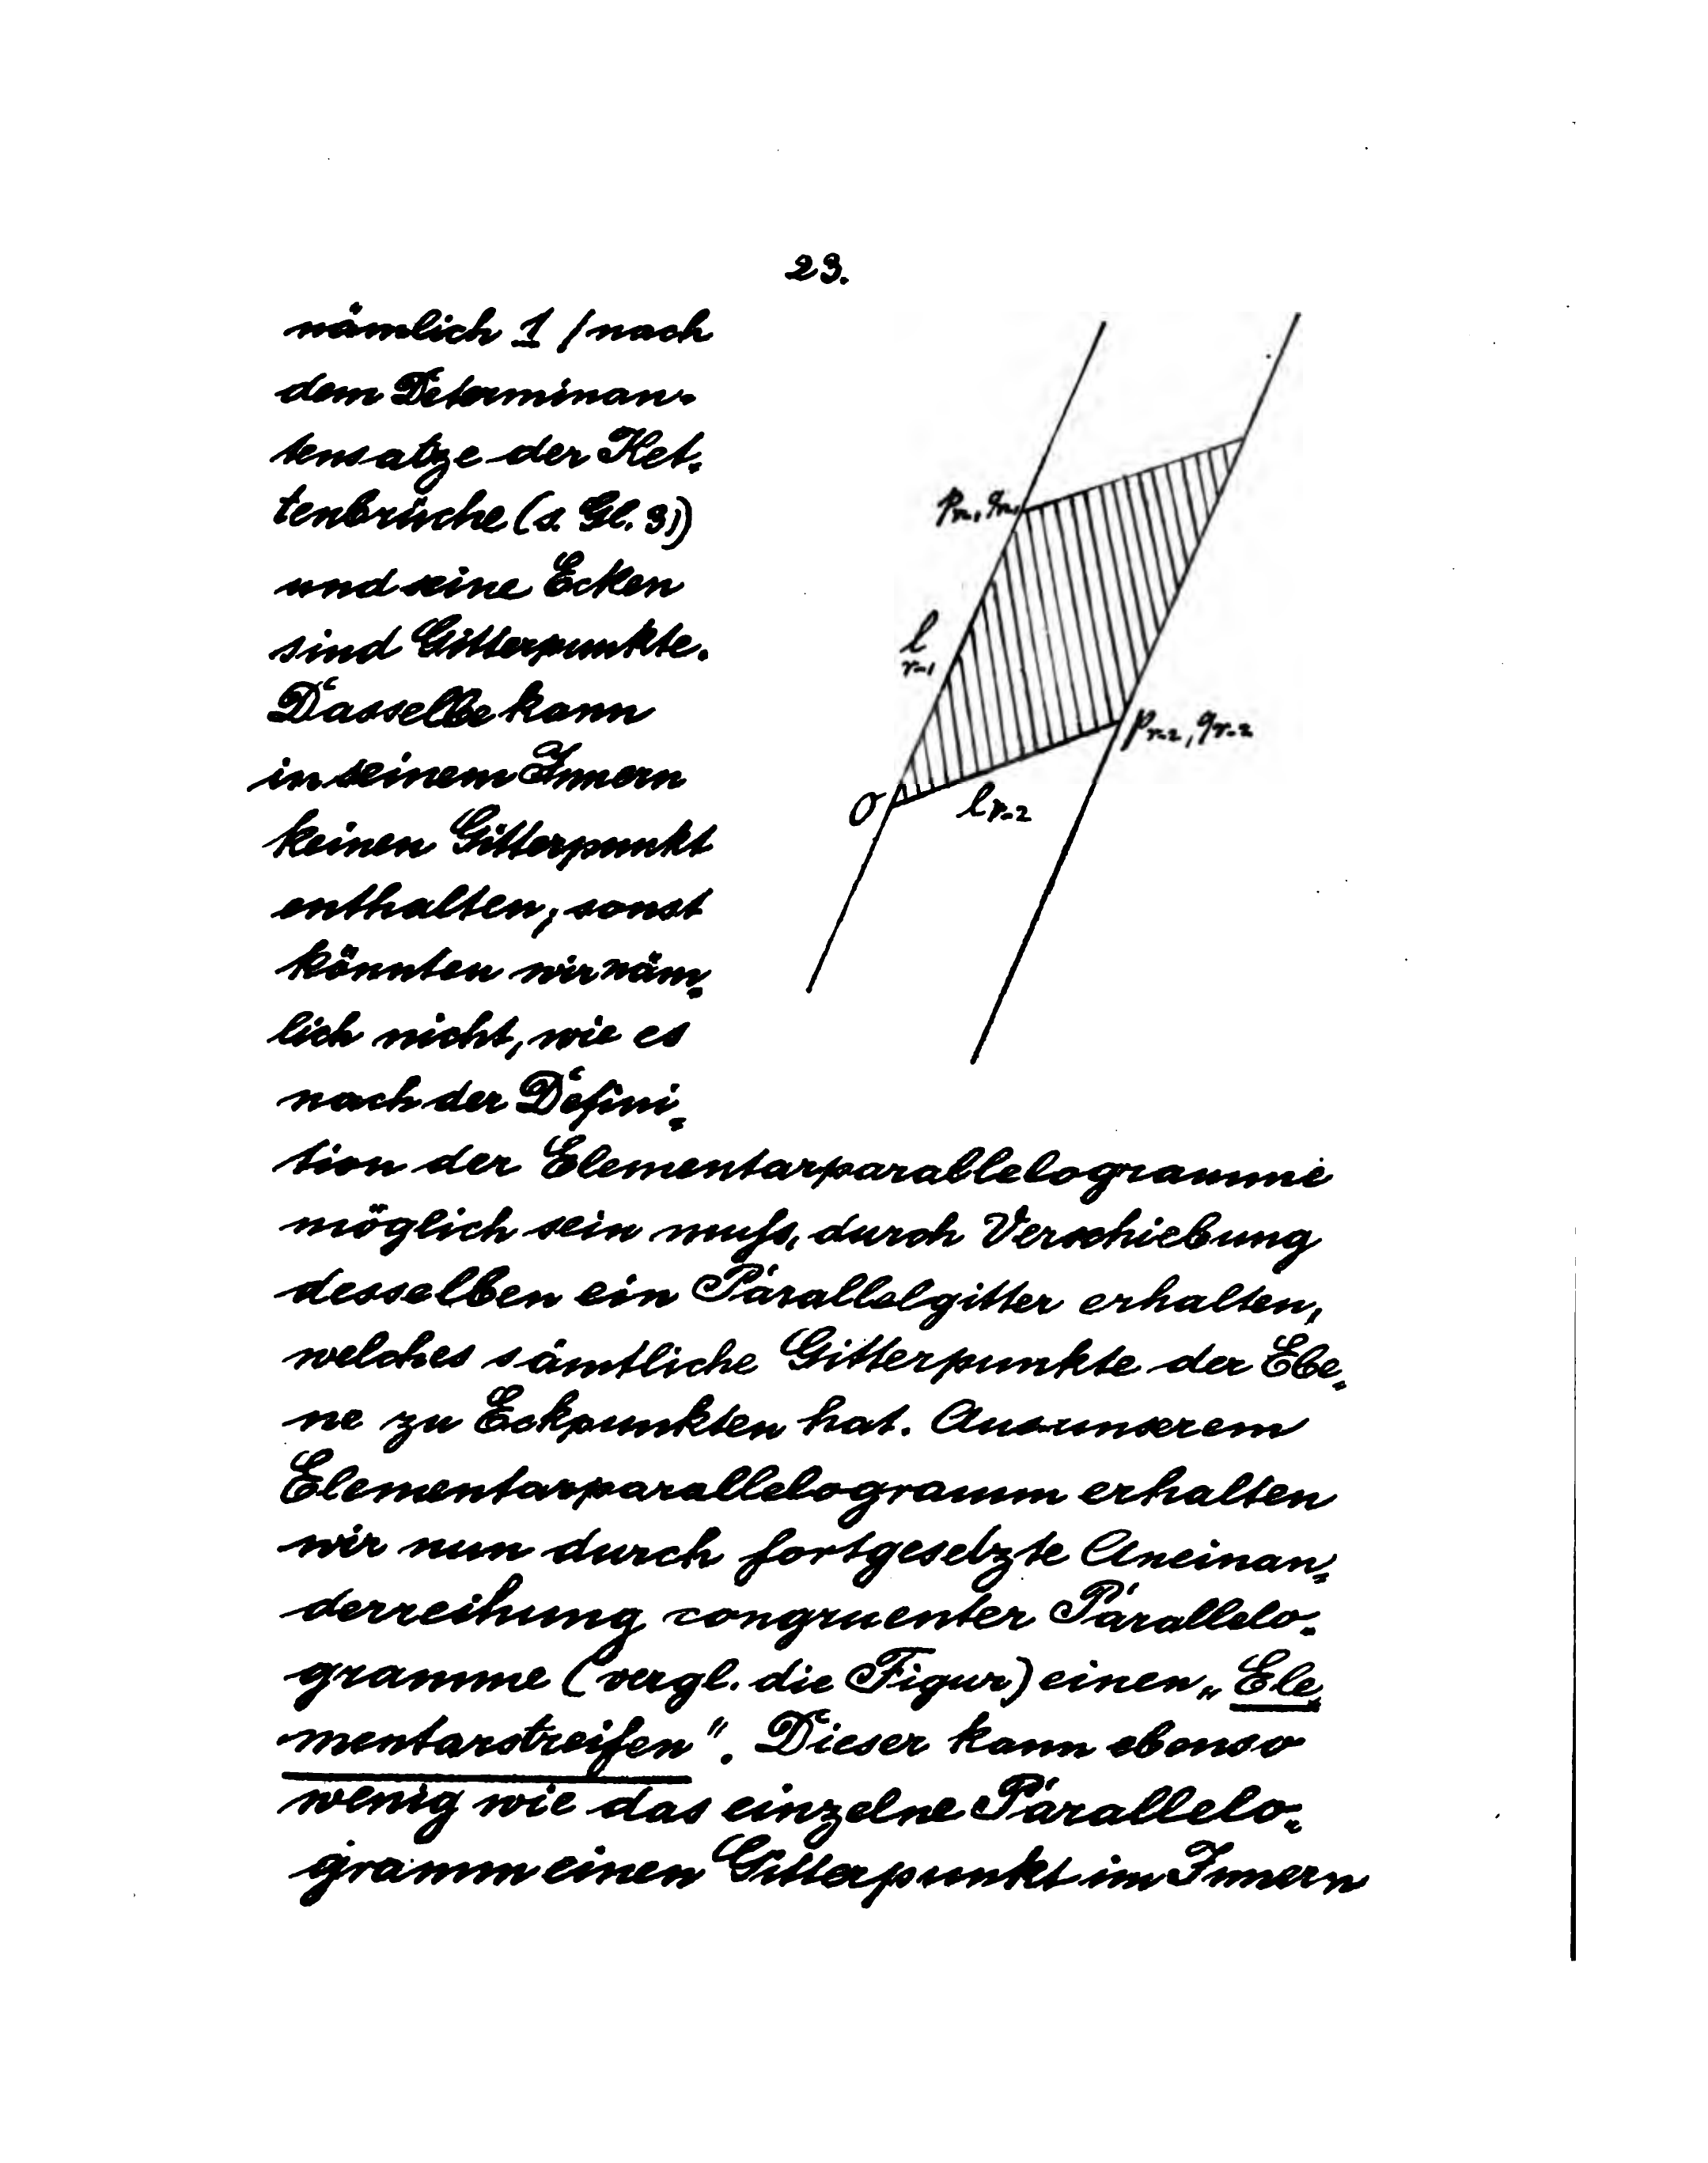 23.
nämlich 1 / nach
dem Determinan-
tensatze der Ket-
tenbrüche (s. Gl. 3))
und seine Ecken
sind Gitterpunkte.
Dasselbe kann
in seinem Innern
keinen Gitterpunkt
enthalten; sonst
könnten wir näm-
lich nicht, wie es
nach der Defini-
tion der Elementarparallelogramme
möglich sein muß, durch Verschiebung
desselben ein Parallelgitter erhalten,
welches sämtliche Gitterpunkte der Ebe-
ne zu Eckpunkten hat. Aus unserem
Elementarparallelogramm erhalten
wir nun durch fortgesetzte Aneinan-
derreihung congruenter Parallelo-
gramme (vergl. die Figur) einen „Ele-
mentarstreifen". Dieser kann ebenso
wenig wie das einzelne Parallelo-
gramm einen Gitterpunkt im Innern
l r-1
p r-2, q r-2
O
l r-2